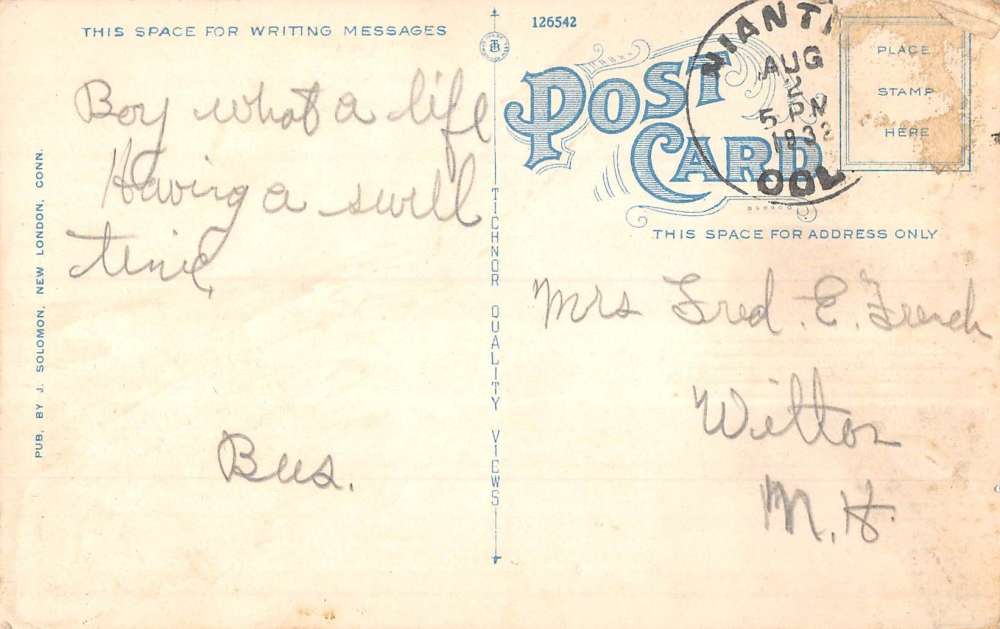 THIS SPACE FOR WRITING MESSAGES
Boy what a life
Having a swell
time,
Bus.
PUB. BY J. SOLOMON, NEW LONDON, CONN.
TICHNOR QUALITY VIEWS
126542
POST
CARD
AUG
2
5 PM
PLACE
STAMP
HERE
THIS SPACE FOR ADDRESS ONLY
Mrs Fred. E. French
Wilton
N. H.